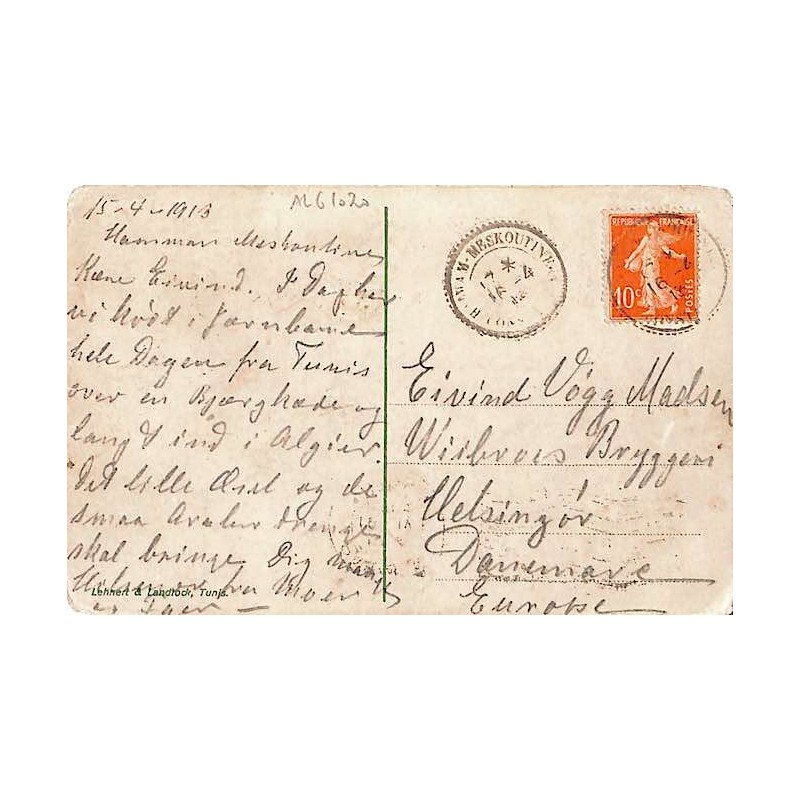 15-4-1913
ALG 1020
Hammam Meskoutine
Kære Eivind. I Dag har
vi kørt i Jærnbane
hele Dagen fra Tunis
over en Bjærgkæde og
langt ind i Algier.
Det lille Æsel og de
smaa Araber drenge
skal bringe Dig mange
Hilsener fra Moer
og Faer —
Lehnert & Landrock, Tunis.
HAMMAM-MESKOUTINE
REPUBLIQUE FRANÇAISE
10c
POSTES
Eivind Vögg Madsen
Wiibroes Bryggeri
Helsingör
Danemarc
Europe